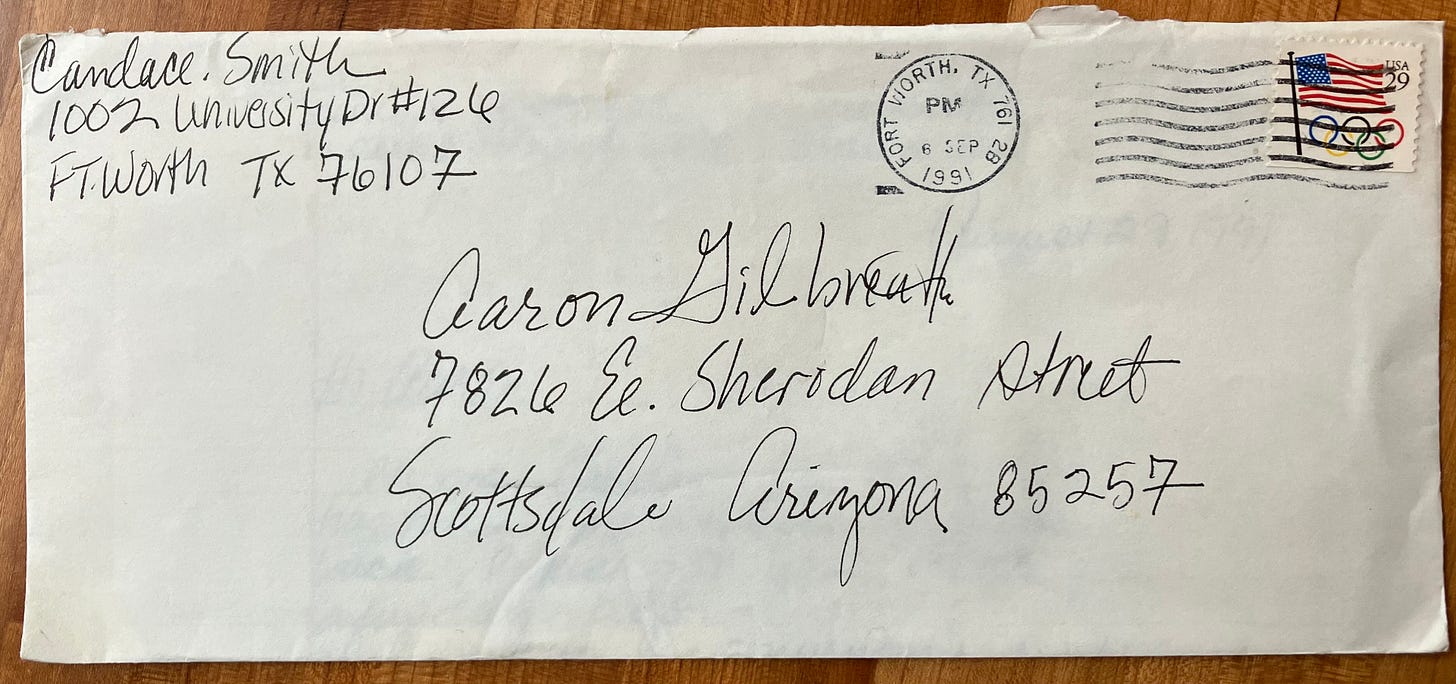 Candace. Smith
1002 University Dr #126
FT. Worth TX 76107
FORT WORTH, TX 761 2B
PM
6 SEP
1991
USA
29
Aaron Gilbreath
7826 E. Sheridan Street
Scottsdale Arizona 85257